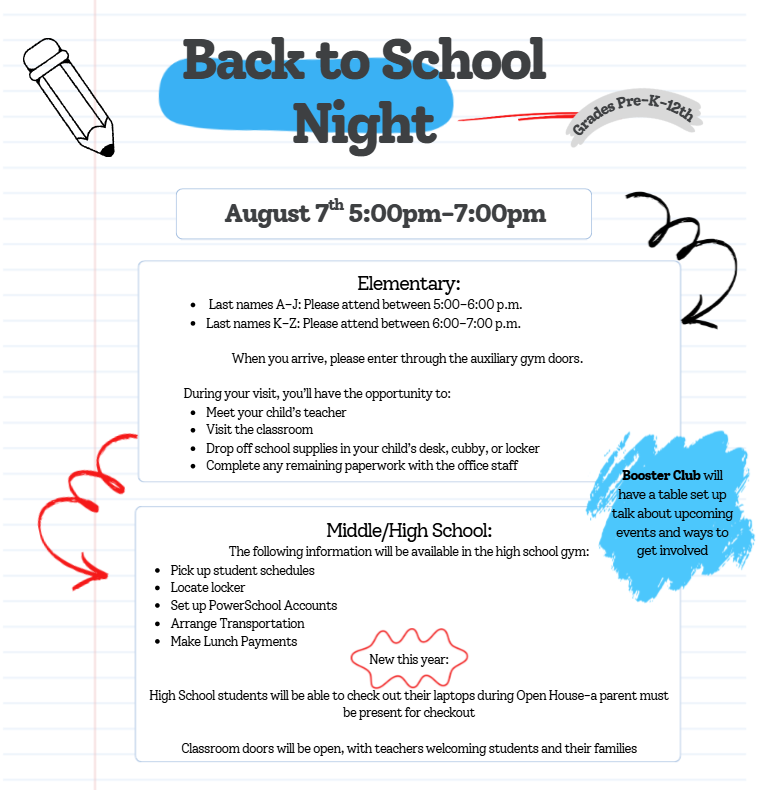 Back to School
Night
Grades Pre-K-12th
August 7th 5:00pm-7:00pm
Elementary:
• Last names A-J: Please attend between 5:00-6:00 p.m.
• Last names K-Z: Please attend between 6:00-7:00 p.m.
When you arrive, please enter through the auxiliary gym doors.
During your visit, you'll have the opportunity to:
• Meet your child's teacher
• Visit the classroom
• Drop off school supplies in your child's desk, cubby, or locker
• Complete any remaining paperwork with the office staff
Booster Club will
have a table set up
talk about upcoming
events and ways to
get involved
Middle/High School:
The following information will be available in the high school gym:
• Pick up student schedules
• Locate locker
• Set up PowerSchool Accounts
• Arrange Transportation
• Make Lunch Payments
New this year:
High School students will be able to check out their laptops during Open House-a parent must
be present for checkout
Classroom doors will be open, with teachers welcoming students and their families